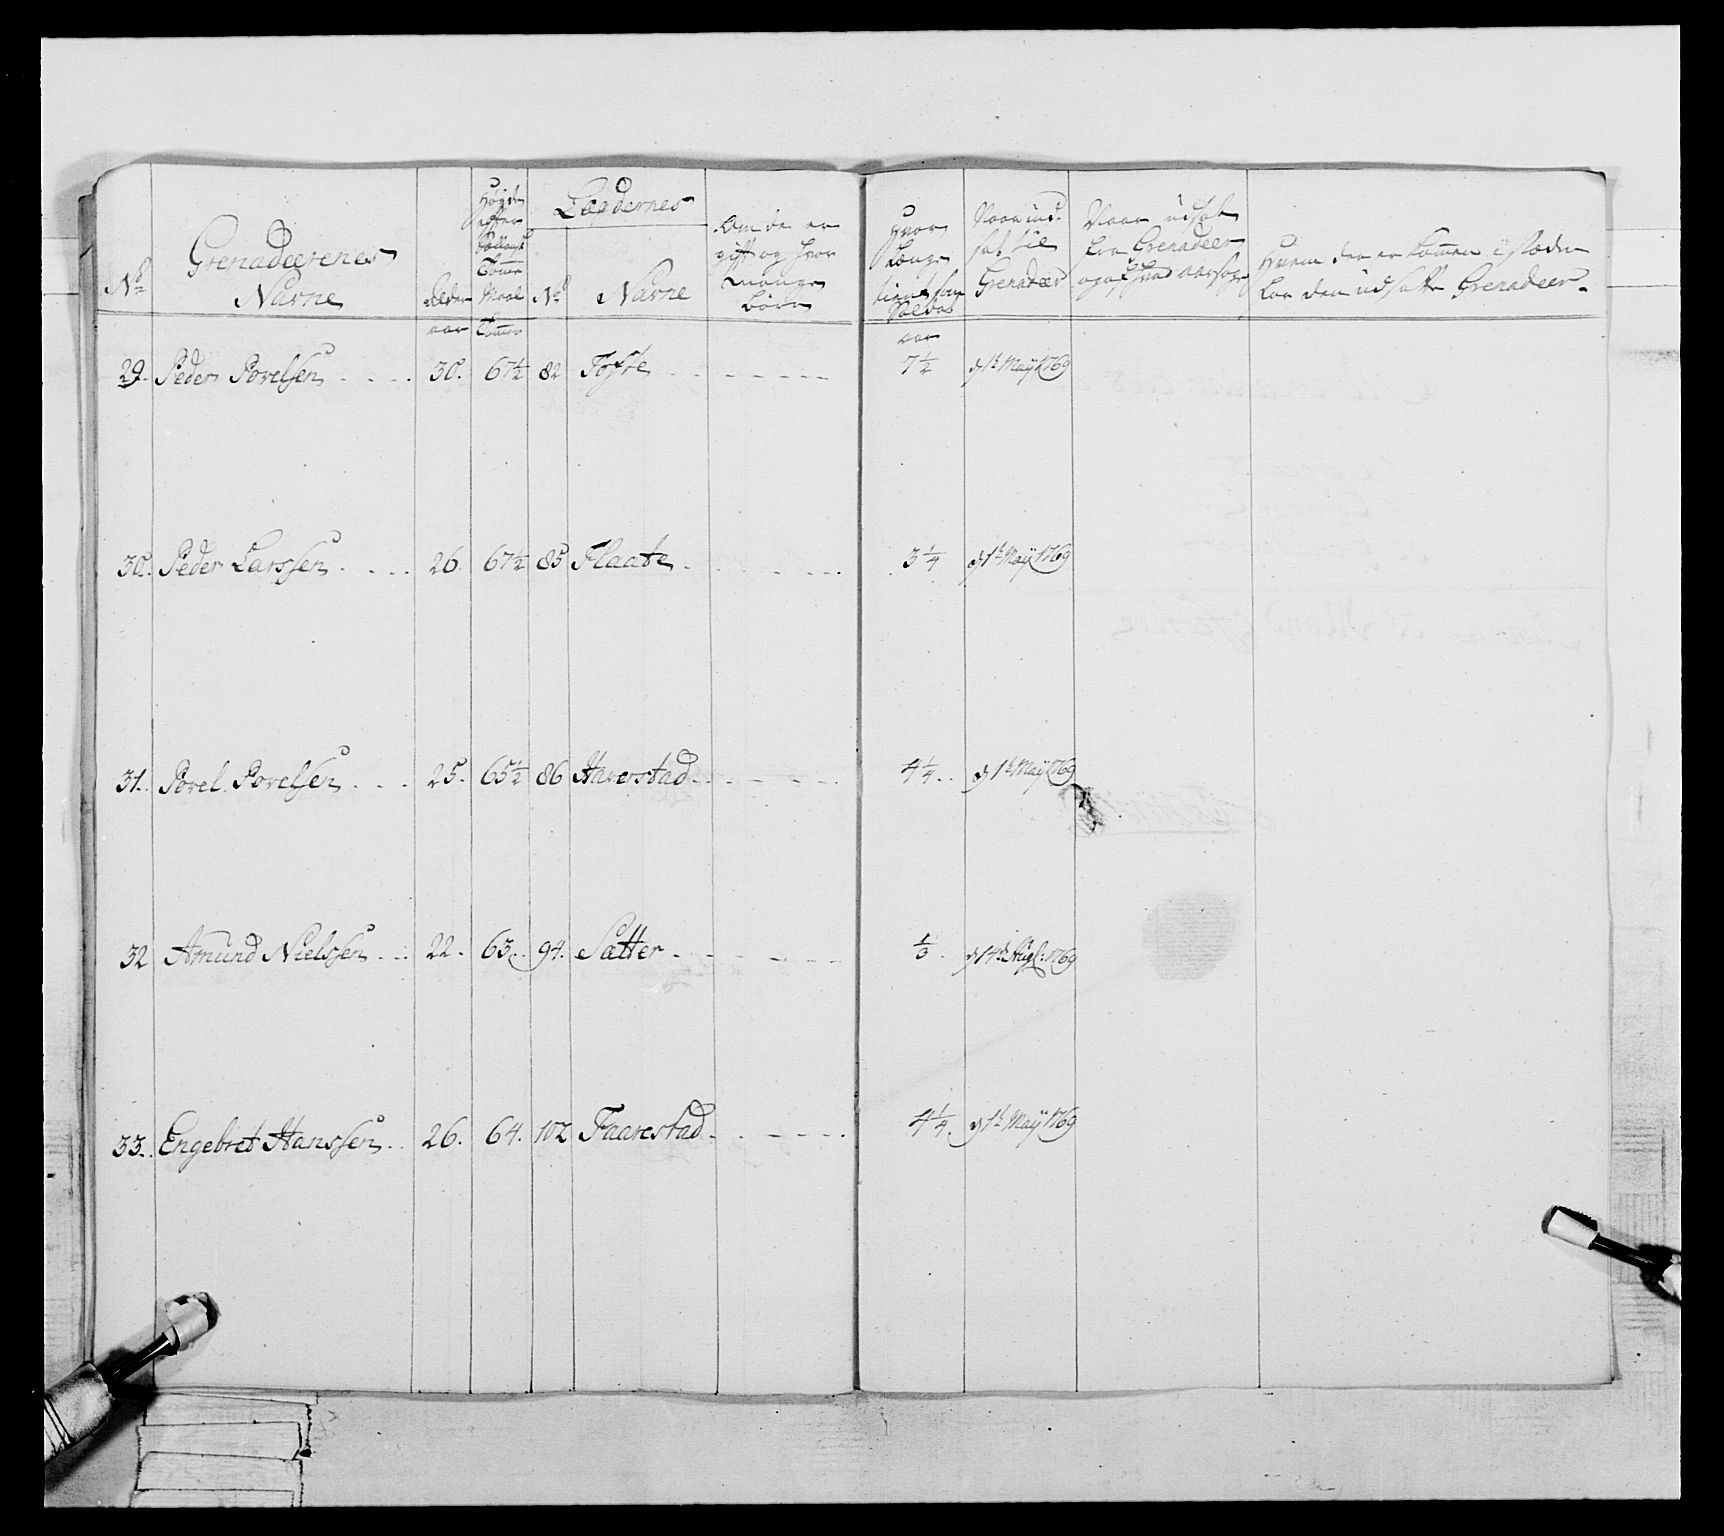 No
Grenadeerenes
Navne
Alder
aar
Høyde
efter
Tomme
Maal
Tommer
Lægdernes
No
Navne
Om de er
gift og hvor
mange
børn
Hvor
længe
tient for
Soldat
aar
Naar ind-
sat til
Grenadeer
Naar udsat
fra Grenadeer
og af hvad aarsage
Hvem der er kommen i stæden
for den udsatte Grenadeer.
29. Peder Povelsen .... 30. 67½ 82 Tofte ------ 7½ d 1t May 1769
30. Peder Larssen .... 26. 67½ 85 Flaate ------ 3¼ d 1t May 1769
31. Povel Povelsen .... 25. 65½ 86 Haverstad ------ 4¼ d 1t May 1769
32 Amund Nielssen ... 22. 63. 94. Sætter ------ ⅓ d 14de Aug: 1769
33. Engebret Hanssen .. 26. 64. 102 Faarestad ------ 4¼ d 1t May 1769